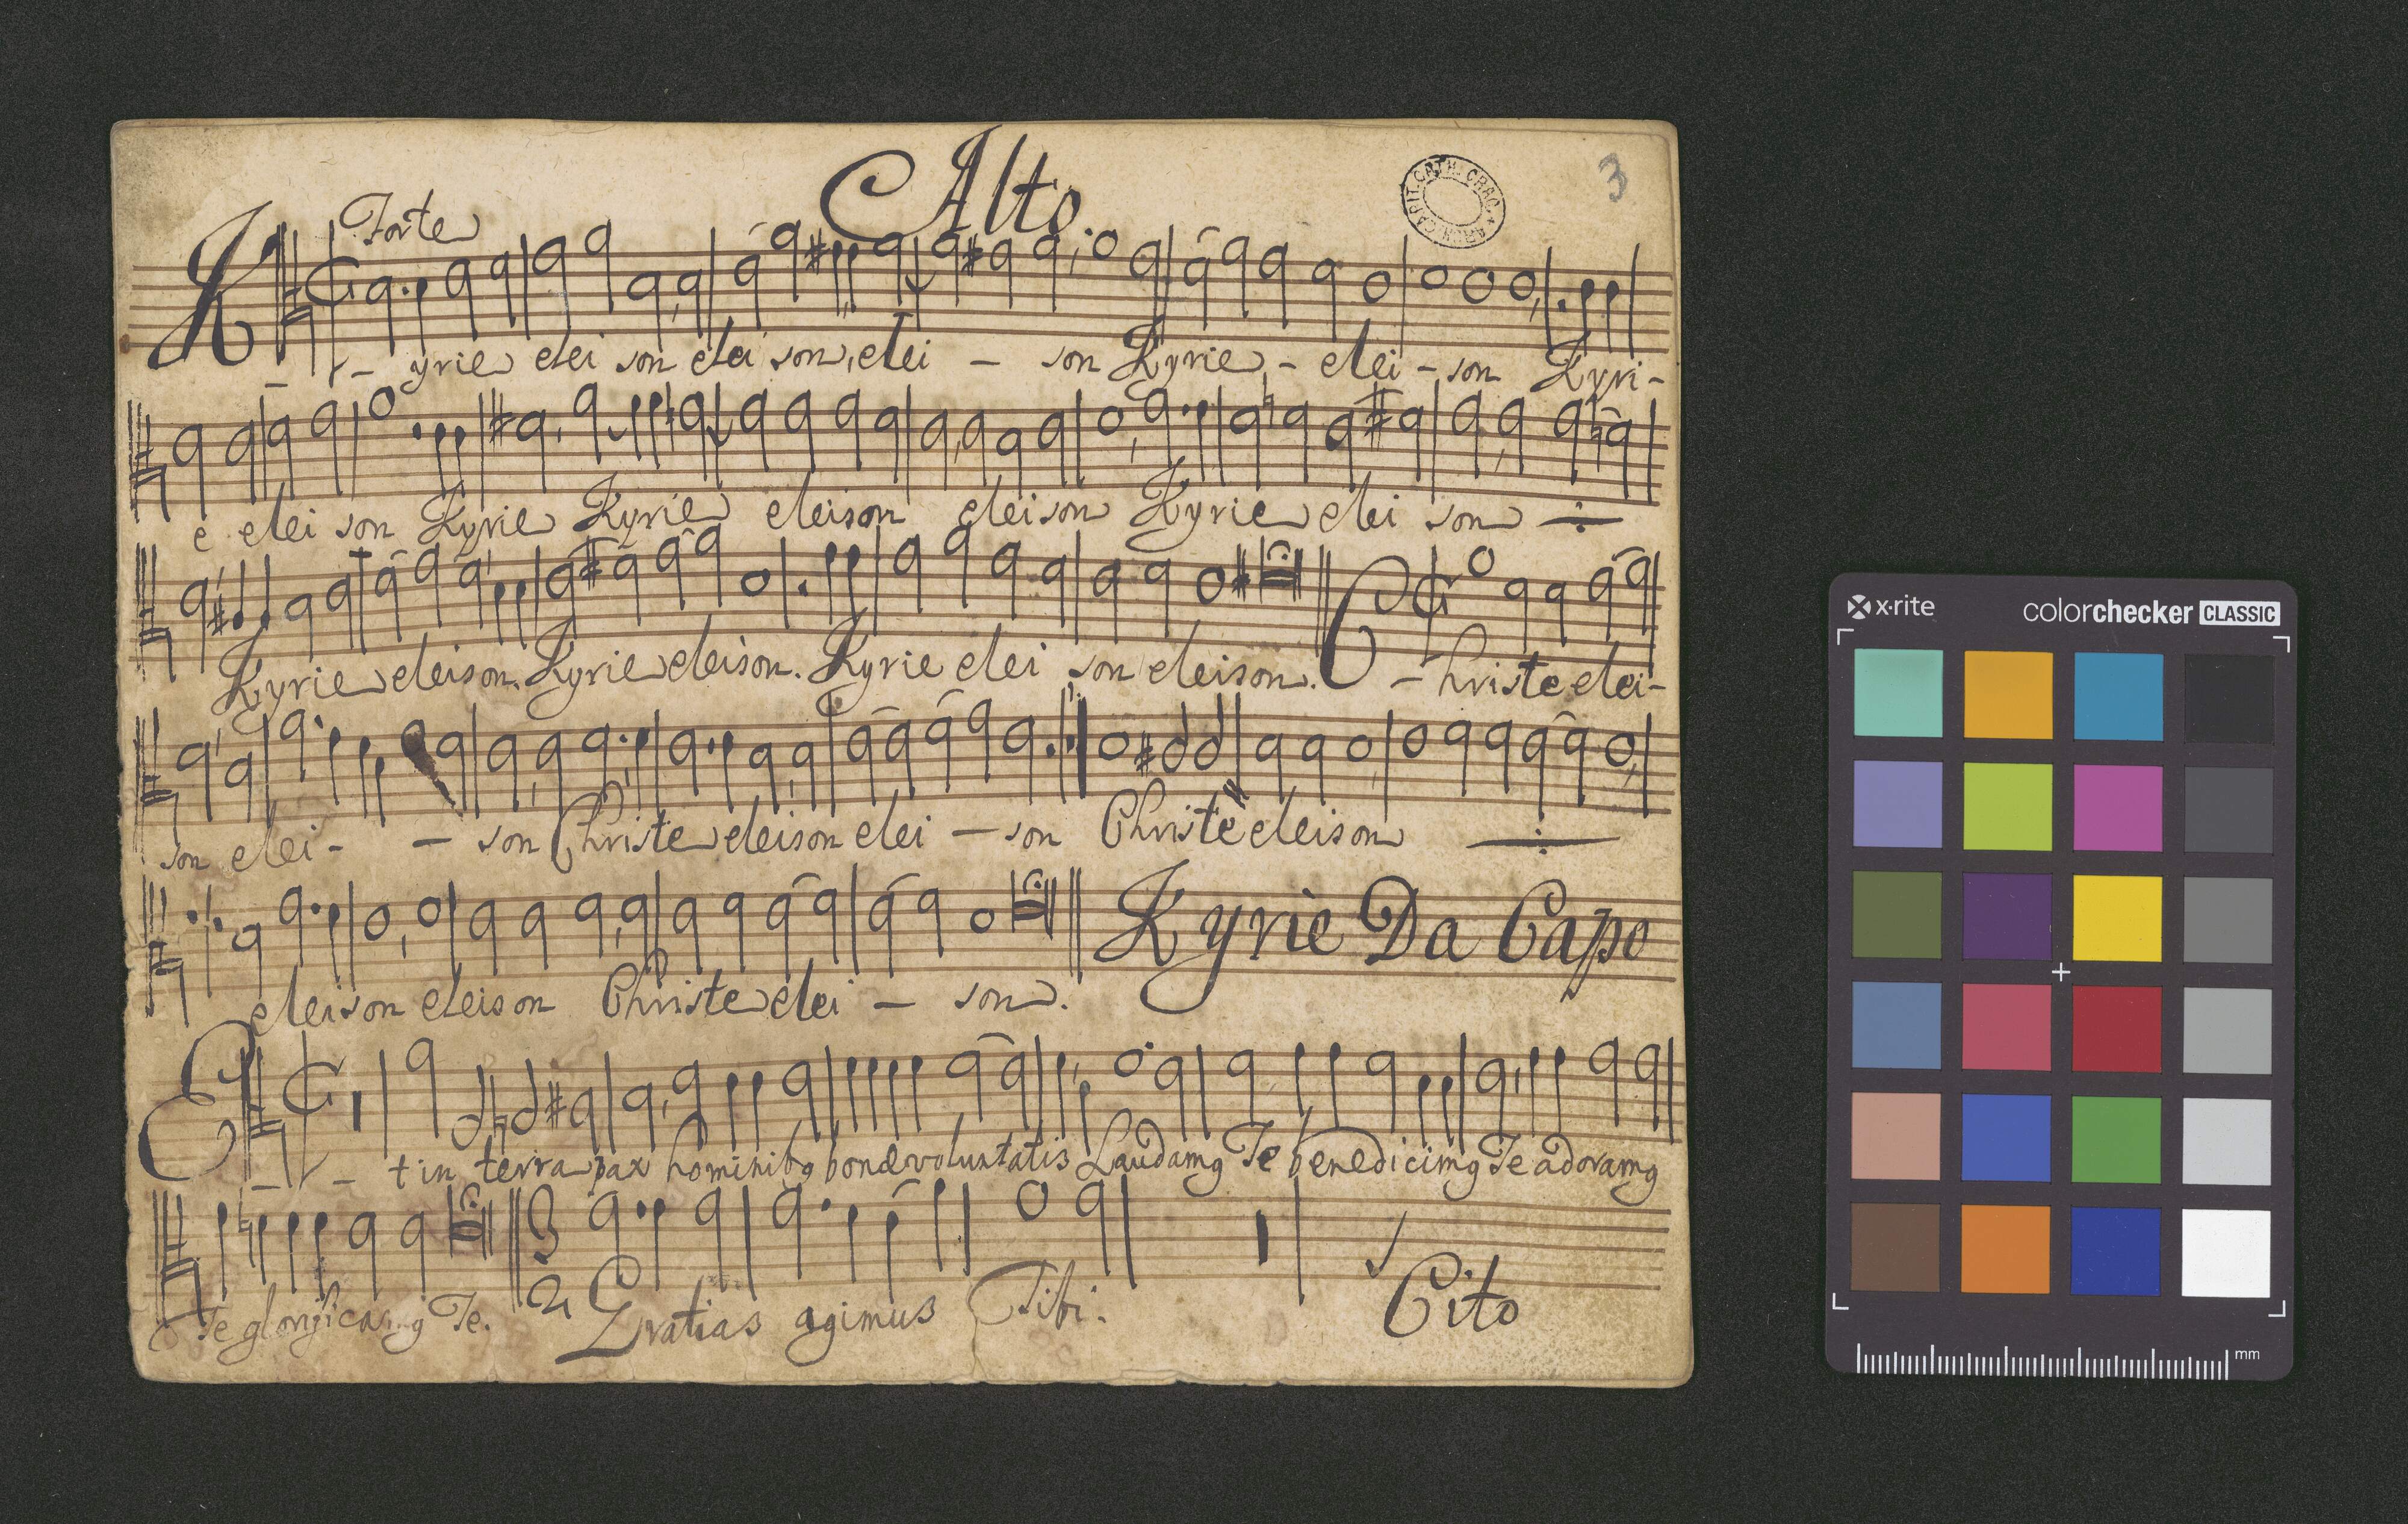 Alto.
3
ARCH. CAPIT. CATH. CRAC.
Forte
K - - yrie elei son elei son, elei - son Kyrie - elei - son Kyri-
e elei son Kyrie Kyrie eleison eleison Kyrie elei son
Kyrie eleison. Kyrie eleison. Kyrie elei son eleison. C - hriste elei-
son elei - - son Christe eleison elei - son Christe eleison
eleison eleison Christe elei - son. Kyrie Da Capo
E - - t in terra pax hominibꝰ bonæ voluntatis Laudamꝰ Te benedicimꝰ Te adoramꝰ
Te glorificamꝰ Te. 3 2 Gratias agimus Tibi. Cito
x·rite colorchecker CLASSIC
mm